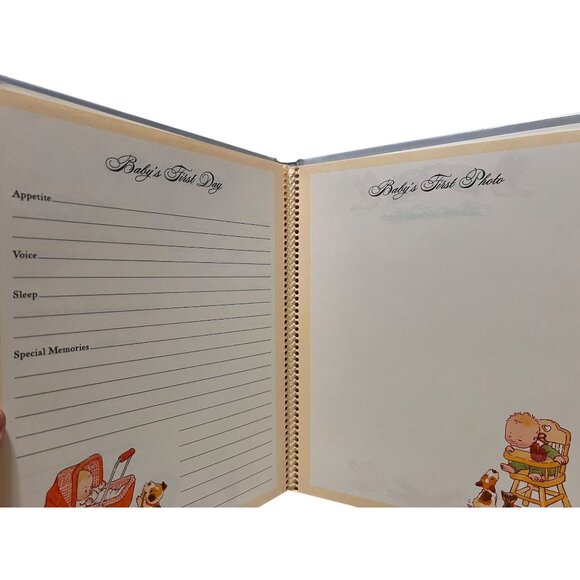 Baby's First Day
Appetite
Voice
Sleep
Special Memories
Baby's First Photo